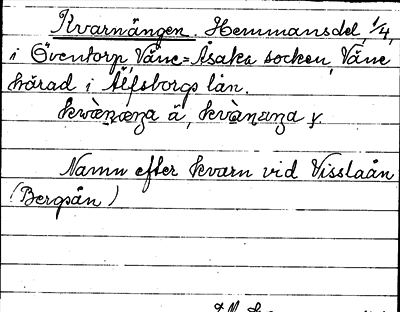 Kvarnängen. Hemmansdel, 1/4,
i Öventorp, Väne-Åsaka socken, Väne
härad i Älfsborgs län.
kvànæŋa ä, kvànæŋa y.
Namn efter kvarn vid Visslaån
(Bergsån)